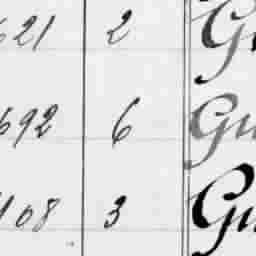 621 2 Gu
692 6 Gu
108 3 Gu